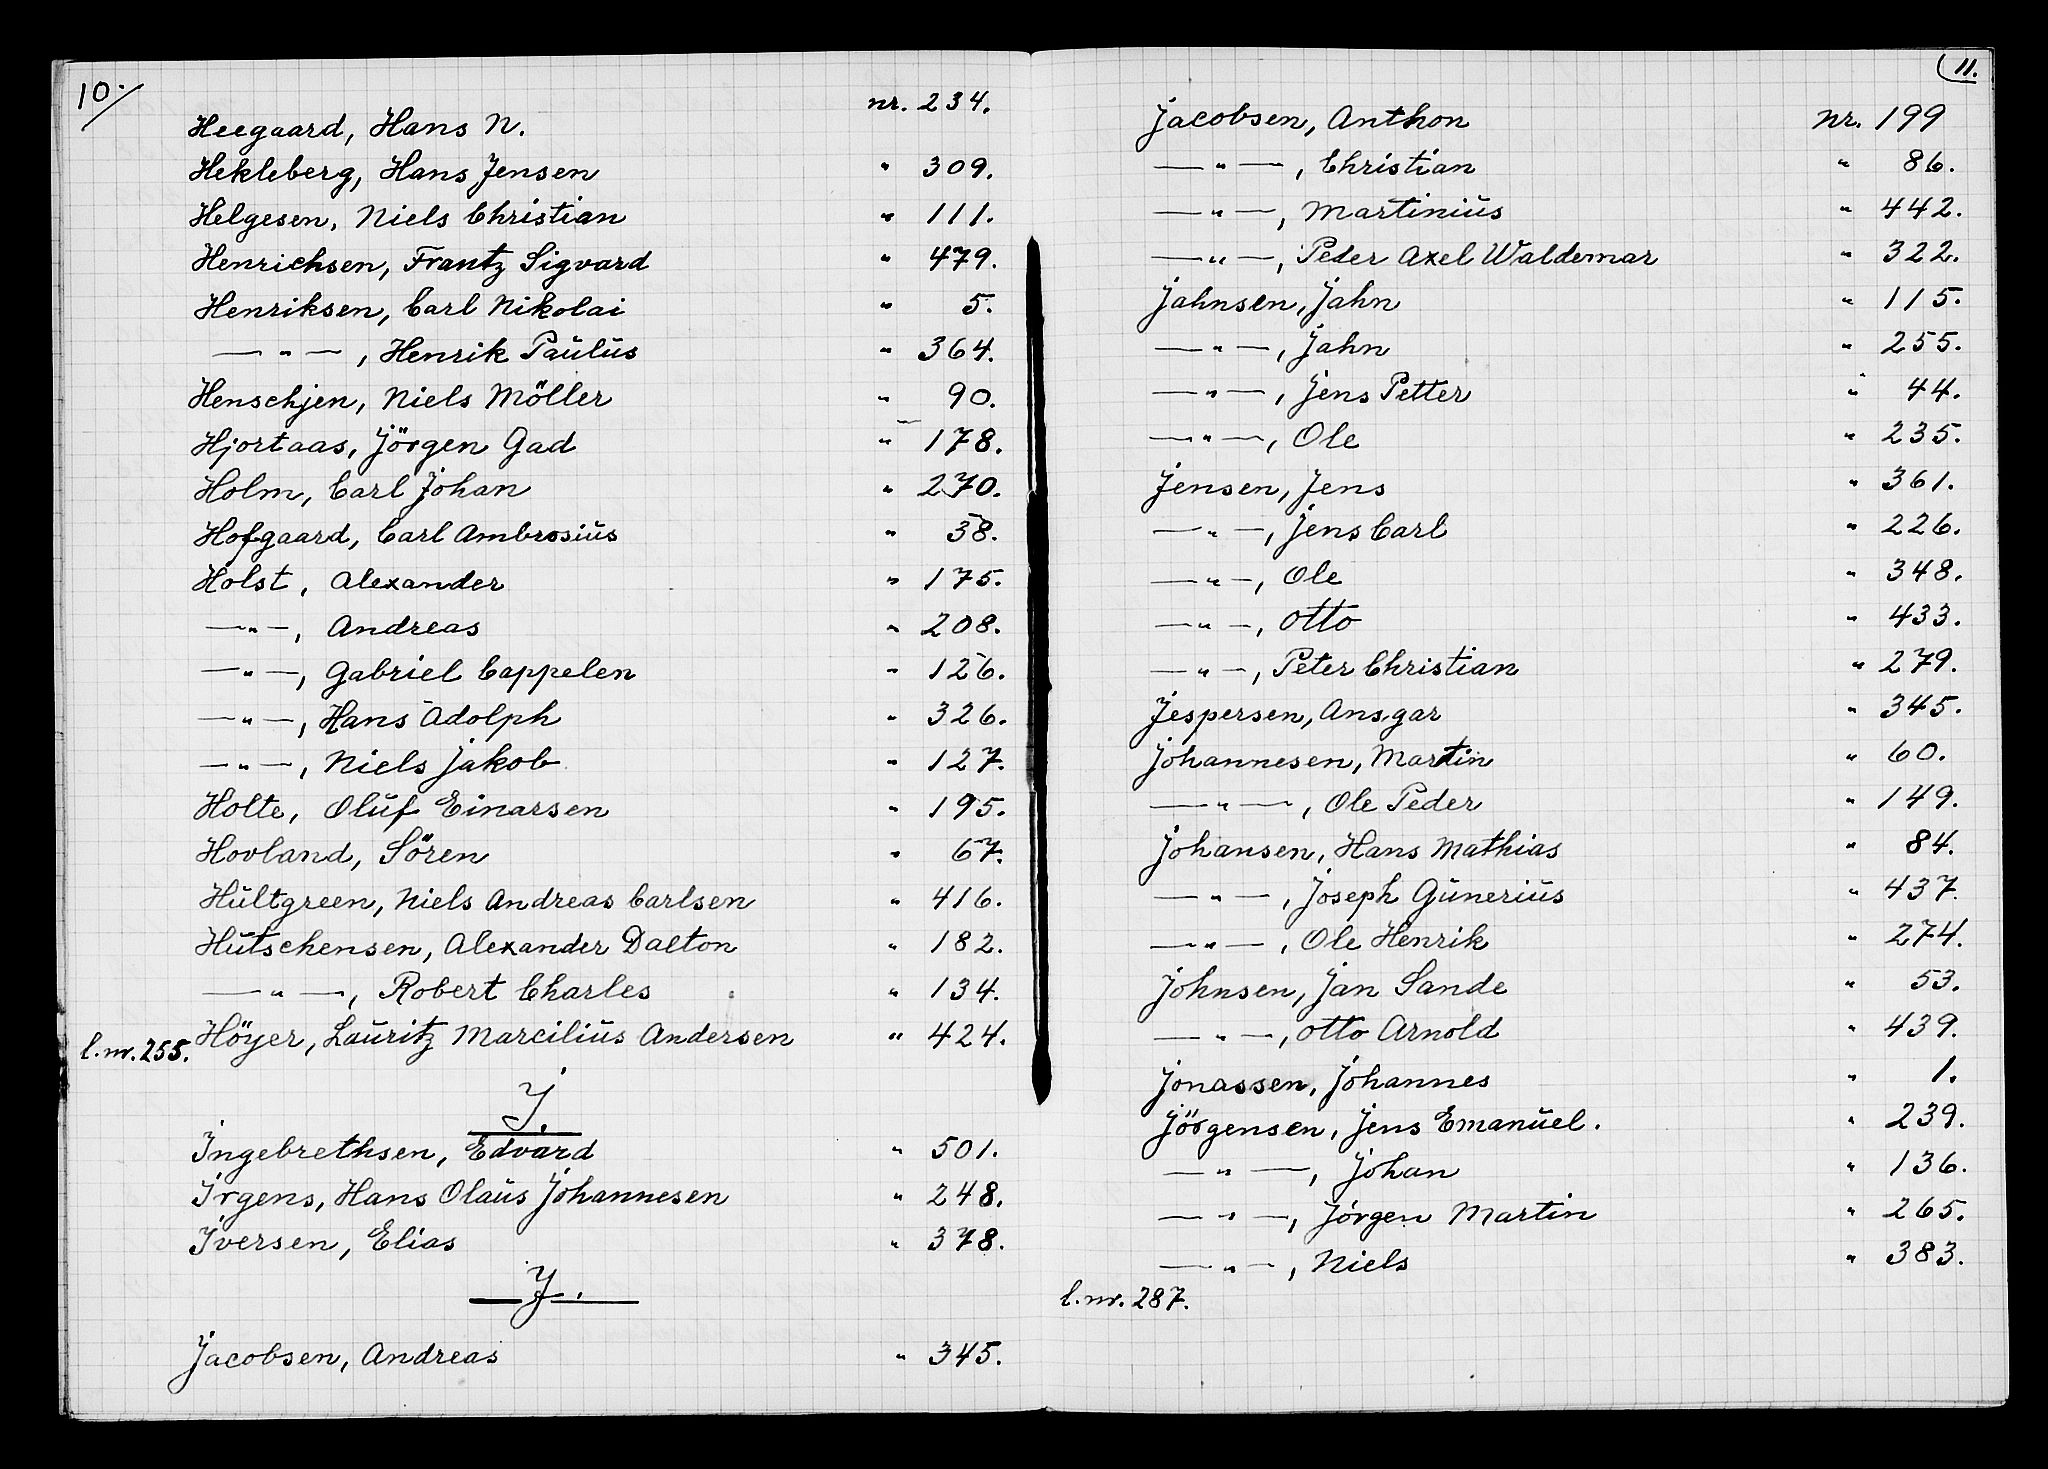 10.
Heegaard, Hans N. nr. 234.
Hekleberg, Hans Jensen " 309.
Helgesen, Niels Christian " 111.
Henrichsen, Frantz Sigvard " 479.
Henriksen, Carl Nikolai " 5.
— " — , Henrik Paulus " 364.
Henschjen, Niels Möller " 90.
Hjortaas, Jörgen Gad " 178.
Holm, Carl Johan " 270.
Hofgaard, Carl Ambrosius " 38.
Holst, Alexander " 175.
— " — , Andreas " 208.
— " — , Gabriel Cappelen " 126.
— " — , Hans Adolph " 326.
— " — , Niels Jakob " 127.
Holte, Oluf Einarsen " 195.
Hovland, Sören " 67.
Hultgreen, Niels Andreas Carlsen " 416.
Hutschensen, Alexander Dalton " 182.
— " — , Robert Charles " 134.
l.nr. 255. Höyer, Lauritz Marcilius Andersen " 424.
I.
Ingebrethsen, Edvard " 501.
Irgens, Hans Olaus Johannesen " 248.
Iversen, Elias " 378.
J.
Jacobsen, Andreas " 345.
11.
Jacobsen, Anthon nr. 199
— " — , Christian " 86.
— " — , Martinius " 442.
— " — , Peder Axel Waldemar " 322.
Jahnsen, Jahn " 115.
— " — , Jahn " 255.
— " — , Jens Petter " 44.
— " — , Ole " 235.
Jensen, Jens " 361.
— " — , Jens Carl " 226.
— " — , Ole " 348.
— " — , Otto " 433.
— " — , Peter Christian " 279.
Jespersen, Ansgar " 345.
Johannesen, Martin " 60.
— " — , Ole Peder " 149.
Johansen, Hans Mathias " 84.
— " — , Joseph Gunerius " 437.
— " — , Ole Henrik " 274.
Johnsen, Jan Sande " 53.
— " — , Otto Arnold " 439.
Jonassen, Johannes " 1.
Jörgensen, Jens Emanuel. " 239.
— " — , Johan " 136.
— " — , Jörgen Martin " 265.
— " — , Niels " 383.
l.nr. 287.